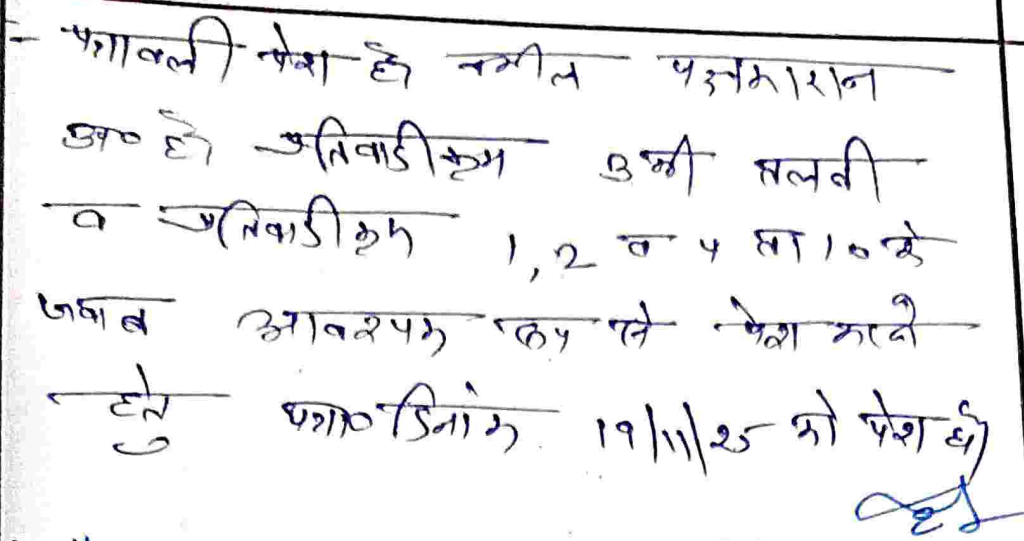 पत्रावली पेश हो वकील पक्षकारान
उप० हो प्रतिवादी क्रम 3 की तलबी
व प्रतिवादी क्रम 1, 2 व 4 ता 10 के
जवाब आवश्यक रूप से पेश करने
हेतु पत्रा० दिनांक 19/11/25 को पेश हो